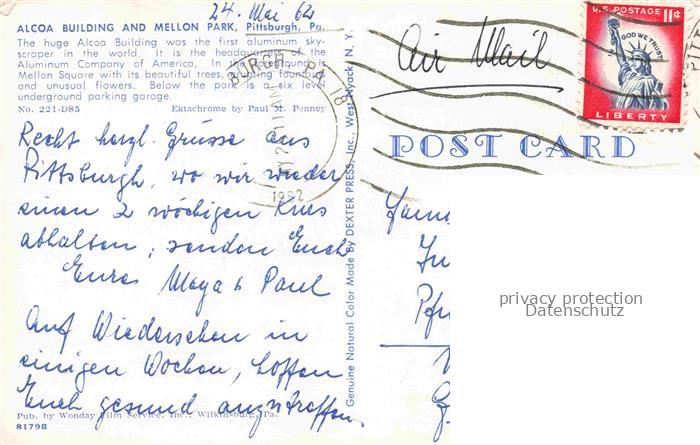 24. Mai 62
ALCOA BUILDING AND MELLON PARK, Pittsburgh, Pa.
The huge Alcoa Building was the first aluminum sky-
scraper in the world. It is the headquarters of the
Aluminum Company of America. In the foreground is
Mellon Square with its beautiful trees, fountains
and unusual flowers. Below the park is a six level
underground parking garage.
No. 221-D85 Ektachrome by Paul M. Penney
Recht herzl. Grüsse aus
Pittsburgh, wo wir wieder
einen 2 wöchigen Kurs
abhalten, senden Euch
Eure Maya & Paul
Auf Wiedersehen in
einigen Wochen, hoffen
Euch gesund anzutreffen.
Pub. by Wonday Film Service, Inc., Wilkinsburg, Pa.
81798
Genuine Natural Color Made by DEXTER PRESS, Inc., West Nyack, N. Y.
PA
1962
Air Mail
U.S. POSTAGE 11¢
IN GOD WE TRUST
LIBERTY
POST CARD
privacy protection
Datenschutz